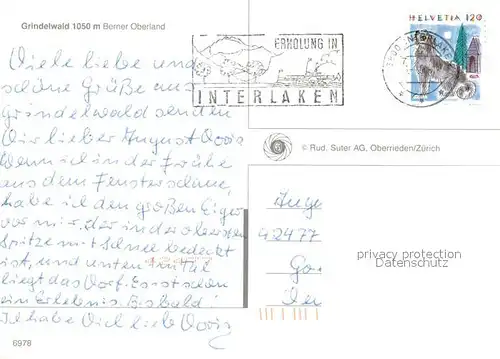 Grindelwald 1050 m Berner Oberland
Viele liebe und
schöne Grüße aus
Grindelwald senden
Dir lieber August Doris
Wenn ich in der Frühe
aus dem Fenster schaue,
habe ich den großen Eiger
vor mir, der in der obersten
Spitze mit Schnee bedeckt
ist, und unten im Tal
liegt das Dorf. Es ist schön
ein Erlebnis. Bis bald!
Ich habe Dich lieb Doris
6978
ERHOLUNG IN
INTERLAKEN
3800 INTERLAKEN
HELVETIA 120
© Rud. Suter AG, Oberrieden/Zürich
42477
privacy protection
Datenschutz